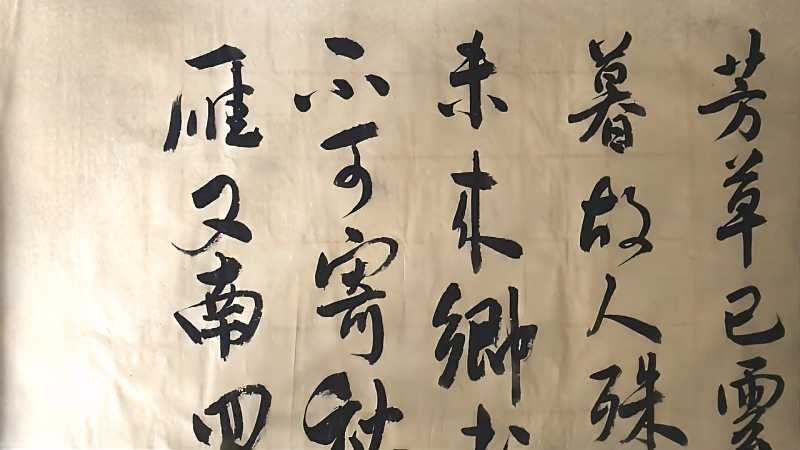 芳草已雲
暮故人殊
未来鄉
不可寄秋
雁又南回